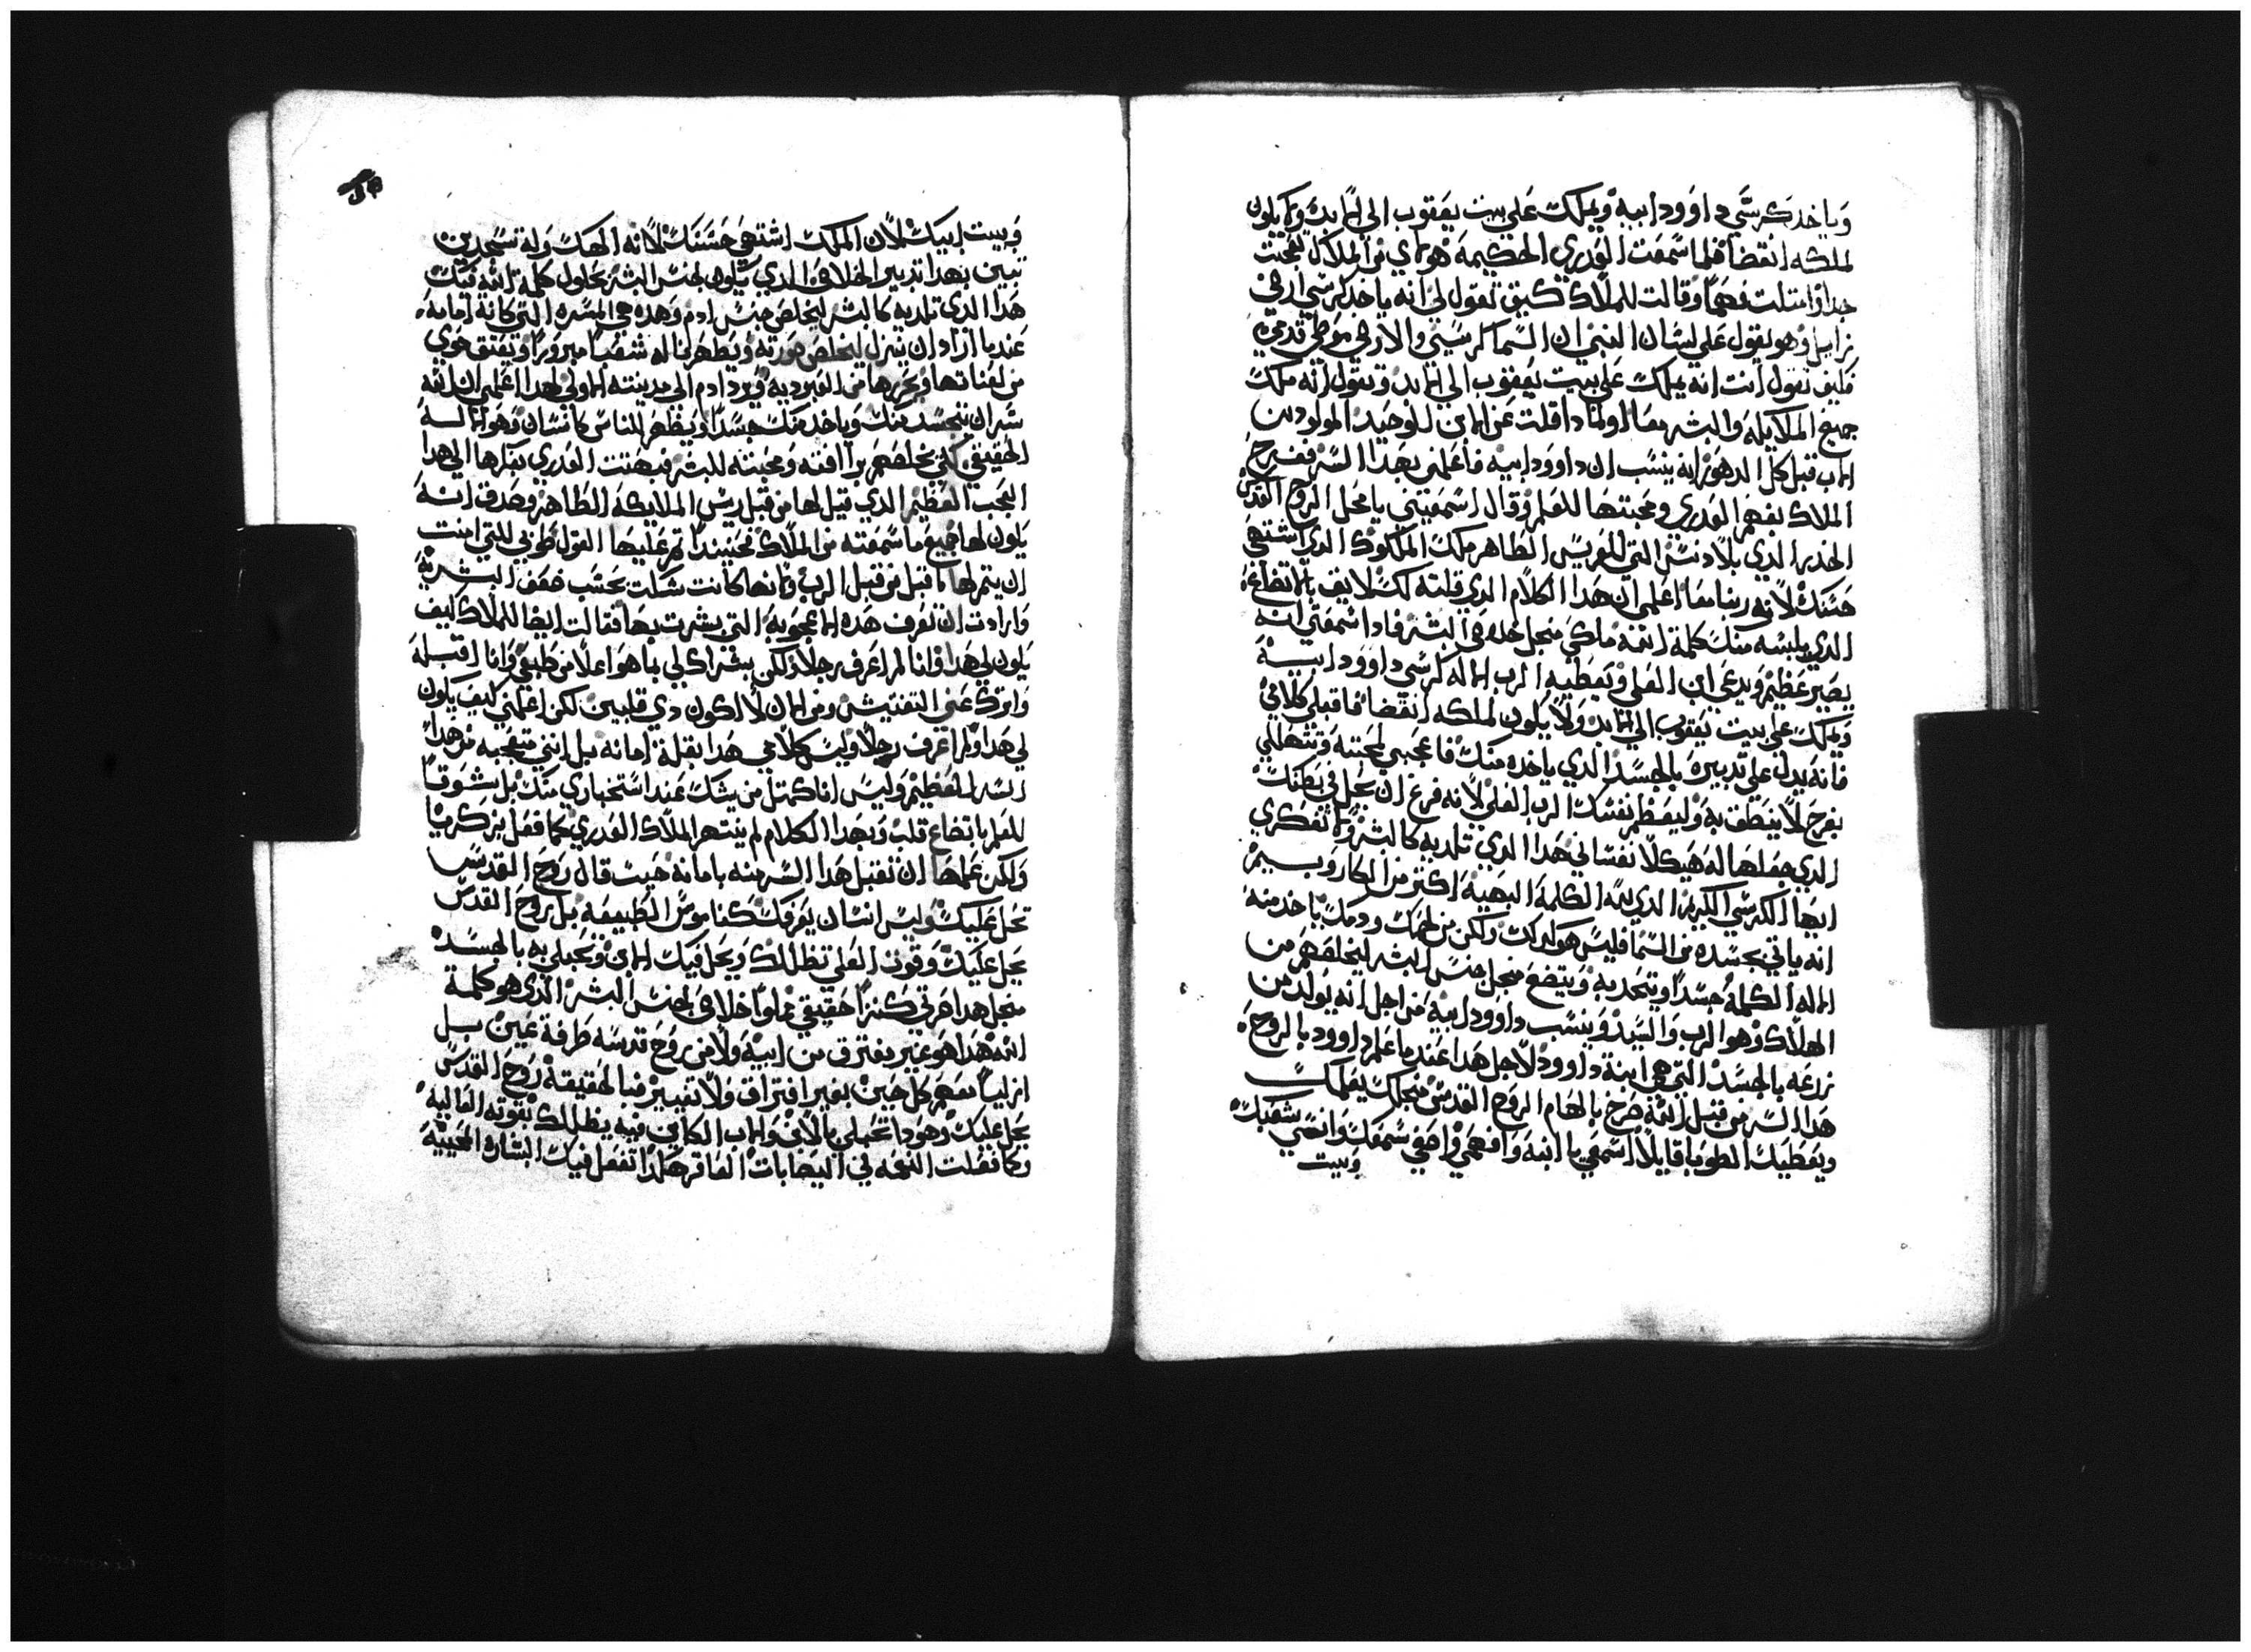 وياخد كرسي داوود ابيه ويملك علي بيت يعقوب الي الابد ولا يكون
لملكه انقضا فلما سمعت العدري الحكيمة هولاي من الملاك تعجبت
جدا وامتلت فهما وقالت للملاك كيف تقول لي انه ياخد كرسي ارضي
وهو يقول علي لسان النبي ان السما كرسيي والارض موطي قدمي
فكيف تقول انت انه يملك علي بيت يعقوب الي الابد وتقول انه ملك
جميع الملايكه والبشر معا اولمادا قلت عن الابن الوحيد المولود من
الاب قبل كل الدهور انه ينسب ان داوود ابيه فاعلمني بهدا السر ففرح
الملاك بفهم العدري ومحبتها للعلم وقال اسمعيني يا محل الروح القدس
الخدر الدي بلا دنس التي للعريس الطاهر ملك الملوك الدي اشتهي
حسنك لانه ربنا معا اعلمي ان هدا الكلام الدي قلته لك لايق بالاتضاع
الدي يلبسه منك كلمة الله ملكي منجل خلاص البشر فادا سمعتي انه
يصير عظيم ويدعي ابن العلي ويعطيه الرب الاله كرسي داوود ابيه
ويملك علي بيت يعقوب الي الابد ولا يكون لملكه انقضا فاقبلي كلامي
فانه يدل علي تدبيره بالجسد الدي ياخده منك فاعجبي لمحبته وتتهللي
بفرح لا ينطق به وليعظم نفسك الرب العلي لانه فرغ ان يحل في بطنك
الدي جعلها له هيكلا نفساني هدا الدي تلديه كالبشر ولا تفكري
ايها الكرسي الكريم الدي لله الكلمة البهية اكتر من الكاروبيم
انه ياتي بجسده من السما فليس هو كدلك ولكن من لحمك ودمك ياخد منه
الاله الكلمة جسدا ويتحد به ويتضع منجل جنس البشر ليخلصهم من
الهلاك وهو الرب والسيد وينسب داوود ابيه من اجل انه يولد من
زرعه بالجسد التي هي ابنة داوود لاجل هدا عند ما علم داوود بالروح
هدا السر من قبل الله صرخ بالهام الروح القدس منجلك يعلمك
ويعطيك الطوبا قايلا اسمعي يا ابنه وافهمي واصغي سمعك وانسي شعبك
وبيت
وبيت ابيك لان الملك اشتهي حسنك لانه الهك وله تسجدين
تبين بهدا تدبير الخلاص الدي يكون لجنس البشر بحلول كلمة الله فيك
هدا الدي تلديه كالبشر ليخلص جنس ادم وهده هي المسره التي كانة امامه
عند ما اراد ان ينزل ليخلص صورته ويطهر لنا له شعبا مبرورا ويعتق حوي
من لعناتها ويحررها من العبوديه ويرد ادم الي مدينته الاولي لهدا اعلمي ان الله
سر ان يتجسد منك وياخد منك جسدا ويظهر للناس كانسان وهو الاله
الحقيقي لكي يخلصهم برافته ومحبته للبشر فبهتت العدري بفكرها الي هدا
العجب العظيم الدي قيل لها من قبل ريس الملايكه الطاهر وصدقت انه
يكون لها جميع ما سمعته من الملاك فحينيد تم عليها القول طوبي للتي امنت
ان يتم لها ما قيل من قبل الرب ولانها كانت شكلت بحسب ضعف البشريه
وارادت ان تعرف هده الاعجوبه التي بشرت بها فقالت ايضا للملاك كيف
يكون لي هدا وانا لم اعرف رجلا ولكن بشراك لي بما هو اعلا من طبعي وانا اقبله
واترك عني التفتيش ومن الان لا اكون دي قلبين لكن اعلمني كيف يكون
لي هدا ولم اعرف رجلا وليس كلامي هدا بقلة امانه بل انني متعجبه من هدا
السر العظيم وليس اناكمتل من يشك عند استخباري منك بل بشوق
للعلم باتضاع قلب وبهدا الكلام لم ينتهر الملاك العدري كما فعل بزكريا
ولكن علمها ان تقبل هدا السر منه بامانه حيت قال روح القدس
تحل عليك وليس انسان يعرفك كناموس الطبيعه بل روح القدس
يحل عليك وقوة العلي تظللك ويحل فيك الابن وتحبلي به بالجسد
منجل هدا صرتي كنزا حقيقي مملوا خلاص لجنس البشر الدي هو كلمة
الله هدا هو غير مفترق من ابيه ولا من روح قدسه طرفة عين بل
ازليا معهم كل حين بغير افتراق ولا تغيير فبالحقيقة روح القدس
يحل عليك وهودا تحبلي بالابن والاب الكاين فيه يظللك بقوته العاليه
وكما فعلت النعمه في العاقر هكدا تفعل فيك البشارة المحييه